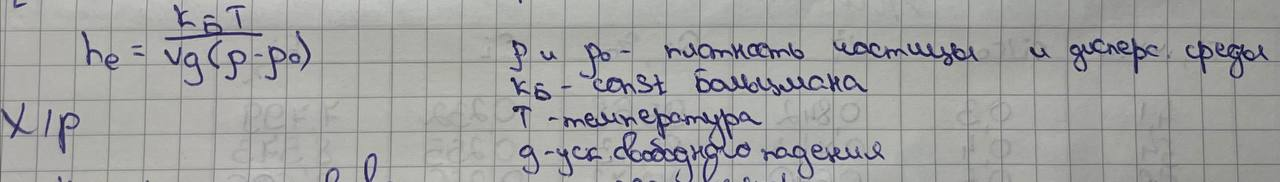 hₑ = K_Б T / Vg(ρ-ρ₀)
ρ и ρ₀ - плотность частицы и дисперс. среды
K_Б - const Больцмана
T - температура
g - уск. свободного падения
X/p